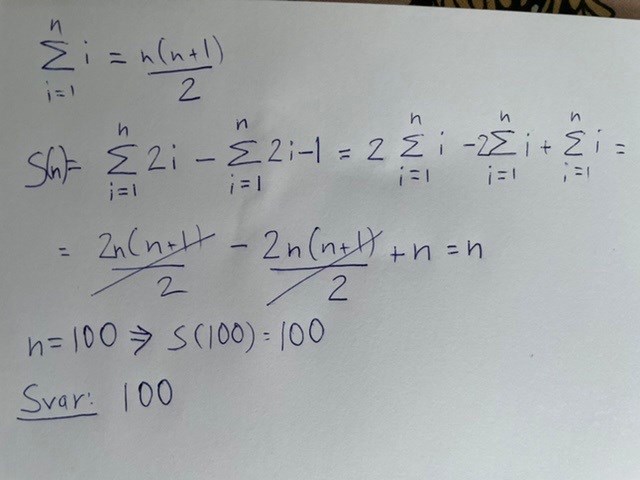 n∑i=1 i = n(n+1)/2
S(n)= n∑i=1 2i - n∑i=1 2i-1 = 2 n∑i=1 i -2 n∑i=1 i + n∑i=1 i =
= 2n(n+1)/2 - 2n(n+1)/2 + n = n
n=100 ⇒ S(100)=100
Svar: 100